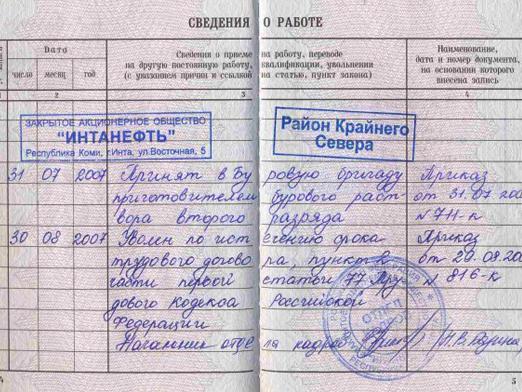 СВЕДЕНИЯ О РАБОТЕ
Дата
число месяц год
Сведения о приеме на работу, переводе
на другую постоянную работу, квалификации, увольнении
(с указанием причин и ссылкой на статью, пункт закона)
Наименование,
дата и номер документа,
на основании которого
внесена запись
1 2 3 4
ЗАКРЫТОЕ АКЦИОНЕРНОЕ ОБЩЕСТВО
"ИНТАНЕФТЬ"
Республика Коми, г.Инта, ул.Восточная, 5
Район Крайнего
Севера
31 07 2007 Принят в буровую бригаду Приказ
приготовителем бурового раст- от 31.07.200
вора второго разряда №711-к
30 08 2007 Уволен по истечению срока Приказ
трудового договора, пункт 2 от 20.08.20
части первой статьи 77 Тру- № 816-к
дового Кодекса Российской
Федерации
Начальник отдела кадров
5